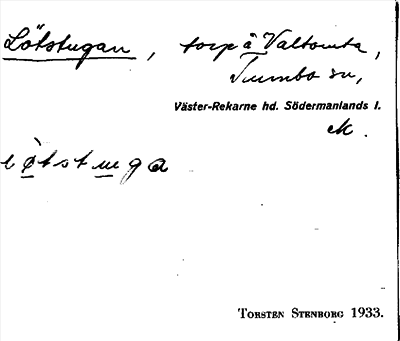 Lötstugan, torp å Valtomta,
Tumbo sn,
Väster-Rekarne hd. Södermanlands l.
ek.
lo̱tstu̱ga
TORSTEN STENBORG 1933.